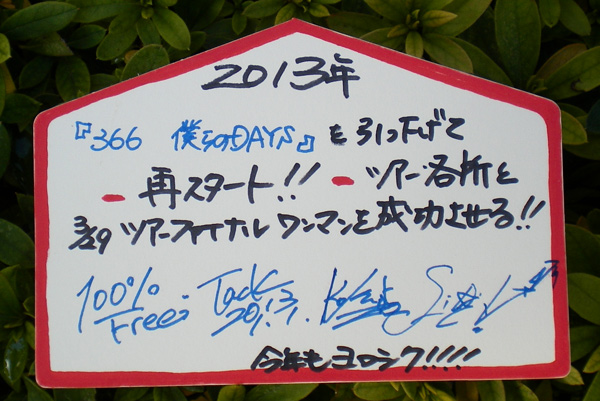 2013年
『366 僕らのDAYS』を引っ下げて
ー再スタート!!ーツアー各所と
3/29 ツアーファイナルワンマンを成功させる!!
100% Free: Tack 2013.
今年もヨロシク!!!!!